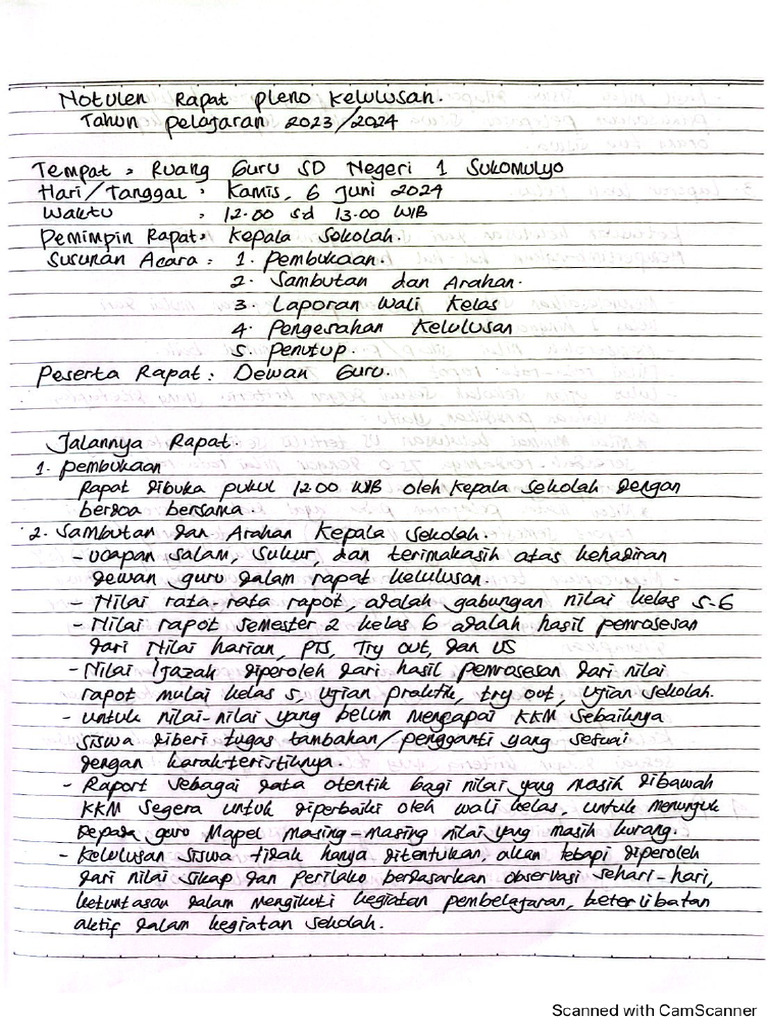 Notulen Rapat pleno Kelulusan.
Tahun pelajaran 2023/2024
Tempat : Ruang Guru SD Negeri 1 Sukomulyo
Hari/Tanggal : Kamis, 6 Juni 2024
Waktu : 12.00 sd 13.00 WIB
Pemimpin Rapat : Kepala Sekolah.
Susunan Acara : 1. Pembukaan.
2. Sambutan dan Arahan.
3. Laporan Wali Kelas
4. Pengesahan Kelulusan
5. Penutup.
Peserta Rapat : Dewan Guru.
Jalannya Rapat.
1. pembukaan
Rapat dibuka pukul 12.00 WIB oleh Kepala Sekolah dengan
berdoa bersama.
2. Sambutan dan Arahan Kepala Sekolah.
- ucapan salam, sukur, dan terimakasih atas kehadiran
dewan guru dalam rapat kelulusan.
- Nilai rata-rata rapot, adalah gabungan nilai kelas 5-6
- Nilai rapot semester 2 kelas 6 adalah hasil pemrosesan
dari Nilai harian, PTS, Try out, dan US
- Nilai Ijazah diperoleh dari hasil pemrosesan dari nilai
rapot mulai kelas 5, Ujian praktik, try out, Ujian sekolah.
- untuk nilai-nilai yang belum mengapai KKM Sebaiknya
siswa diberi tugas tambahan/pengganti yang sesuai
dengan karakteristiknya.
- Raport sebagai data otentik bagi nilai yang masih dibawah
KKM segera untuk diperbaiki oleh wali kelas, untuk menunjuk
kepada guru Mapel masing-masing nilai yang masih kurang.
- Kelulusan siswa tidak hanya ditentukan, akan tetapi diperoleh
dari nilai sikap dan Perilako berdasarkan observasi sehari-hari,
ketuntasan dalam mengikuti kegiatan pembelajaran, keterlibatan
aktif dalam kegiatan sekolah.
Scanned with CamScanner